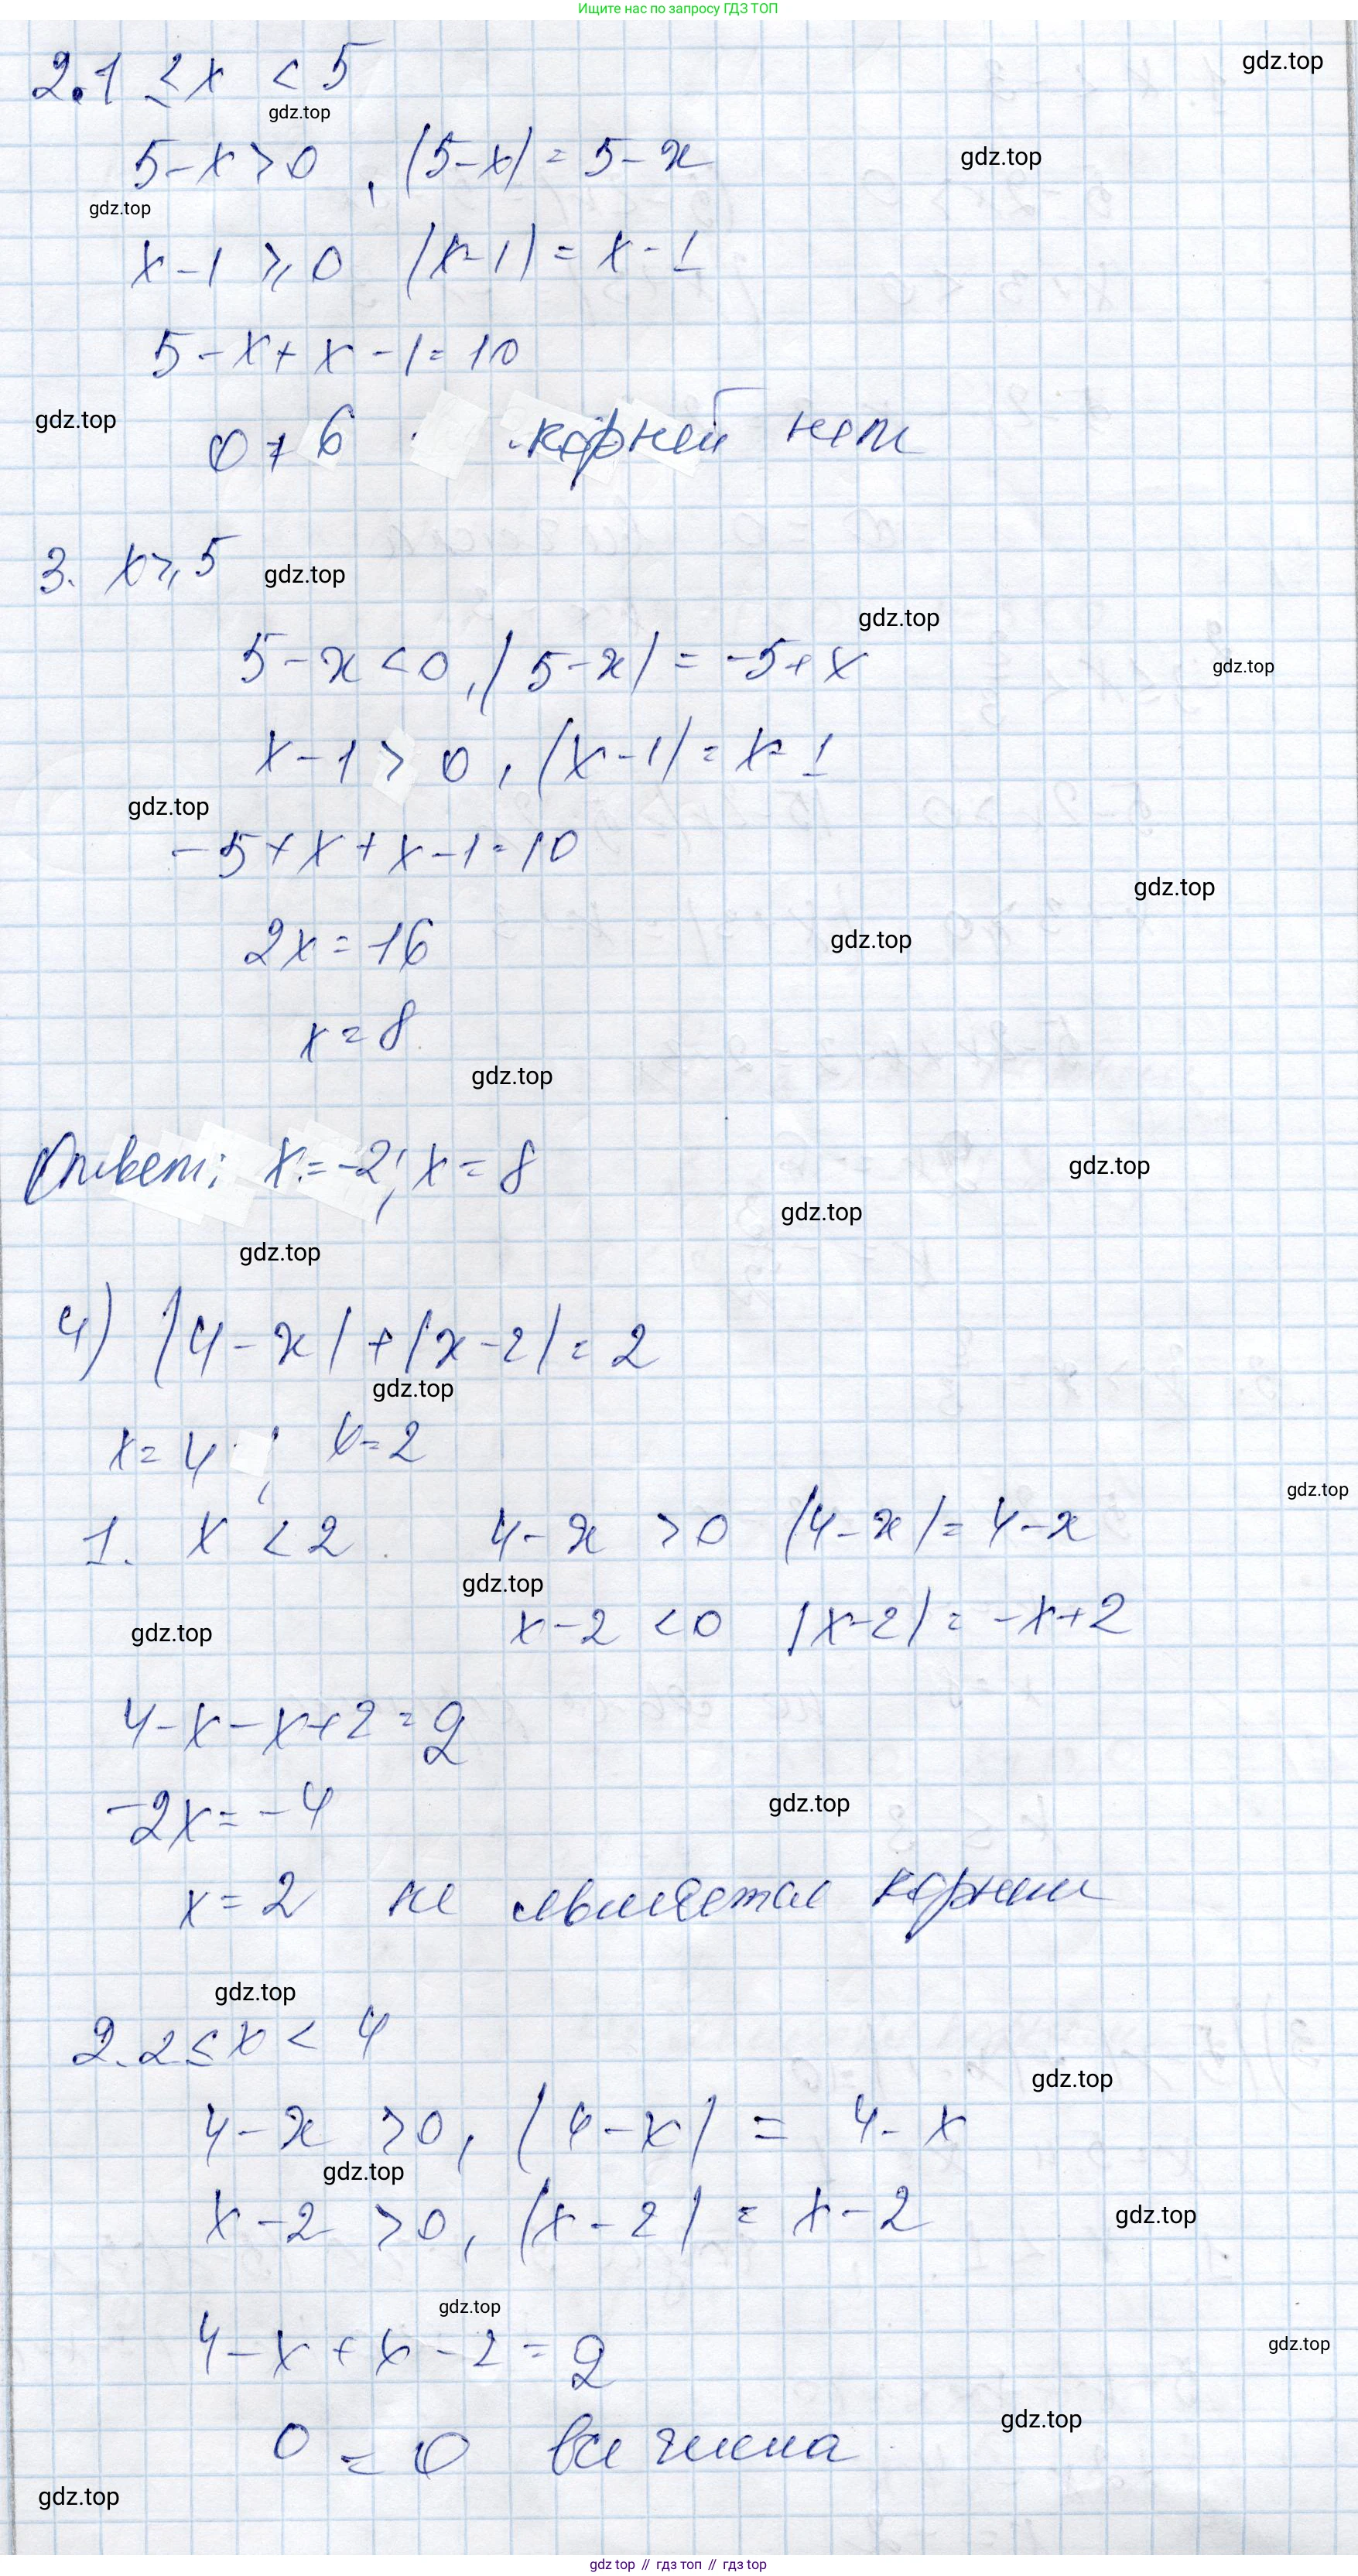 Ищите нас по запросу ГДЗ ТОП
gdz.top
2. 1 ≤ x < 5
gdz.top
5-x > 0, |5-x| = 5-x
gdz.top
gdz.top
x-1 ⩾ 0 |x-1| = x-1
5-x+x-1=10
gdz.top
0 ≠ 6 корней нет
3. x ⩾ 5
gdz.top
gdz.top
5-x < 0, |5-x| = -5+x
gdz.top
x-1 > 0, |x-1| = x-1
gdz.top
-5+x+x-1=10
gdz.top
2x = 16
gdz.top
x = 8
gdz.top
Ответ: x = -2; x = 8
gdz.top
gdz.top
gdz.top
4) |4-x|+|x-2| = 2
gdz.top
x = 4; x = 2
gdz.top
1. x < 2 4-x > 0 |4-x| = 4-x
gdz.top
x-2 < 0 |x-2| = -x+2
gdz.top
4-x-x+2=2
-2x = -4
gdz.top
x = 2 не является корнем
gdz.top
2. 2 ≤ x < 4
gdz.top
4-x > 0, |4-x| = 4-x
gdz.top
x-2 > 0, |x-2| = x-2
gdz.top
gdz.top
4-x+x-2=2
gdz.top
gdz.top
0 = 0 все числа
gdz.top
gdz top // гдз топ // gdz top